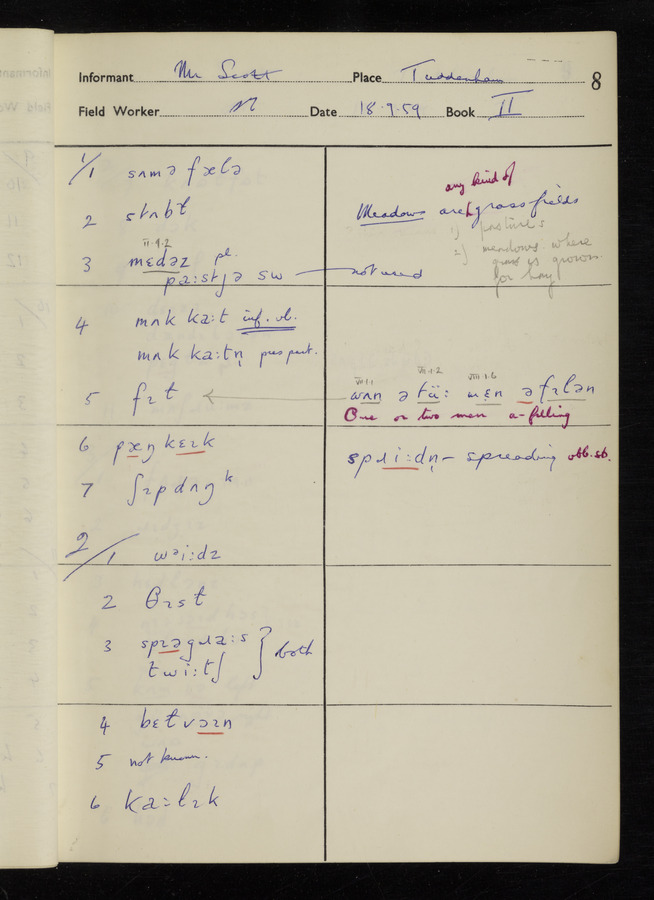 Informant Mr Scott Place Tuddenham 8
Field Worker Date 18.9.59 Book II
1/1 sʌmə fælə
2 stʌbt
II.9.2
3 mɛdəz pl.
pa:stʃə sw — not used
any kind of
Meadows are grass fields
1) pastures
2) meadows where
grass is grown
for hay
4 mʌk ka:t inf. vb.
mʌk ka:tn̩ pres part.
5 fɪt
VII.1.1 VII.1.2 VIII.1.6
wʌn ə tü: mɛn ə fɪlən
One or two men a-filling
6 pæŋ kɛɪk
spɹi:dn̩ — spreading vbl. sb.
7 ʃɪpdʌŋᵏ
2/1 wəi:dz
2 θɪst
3 spɪəgɹa:s
twi:tʃ } both
4 bɛtvəɪn
5 not known.
6 ka:lɪk